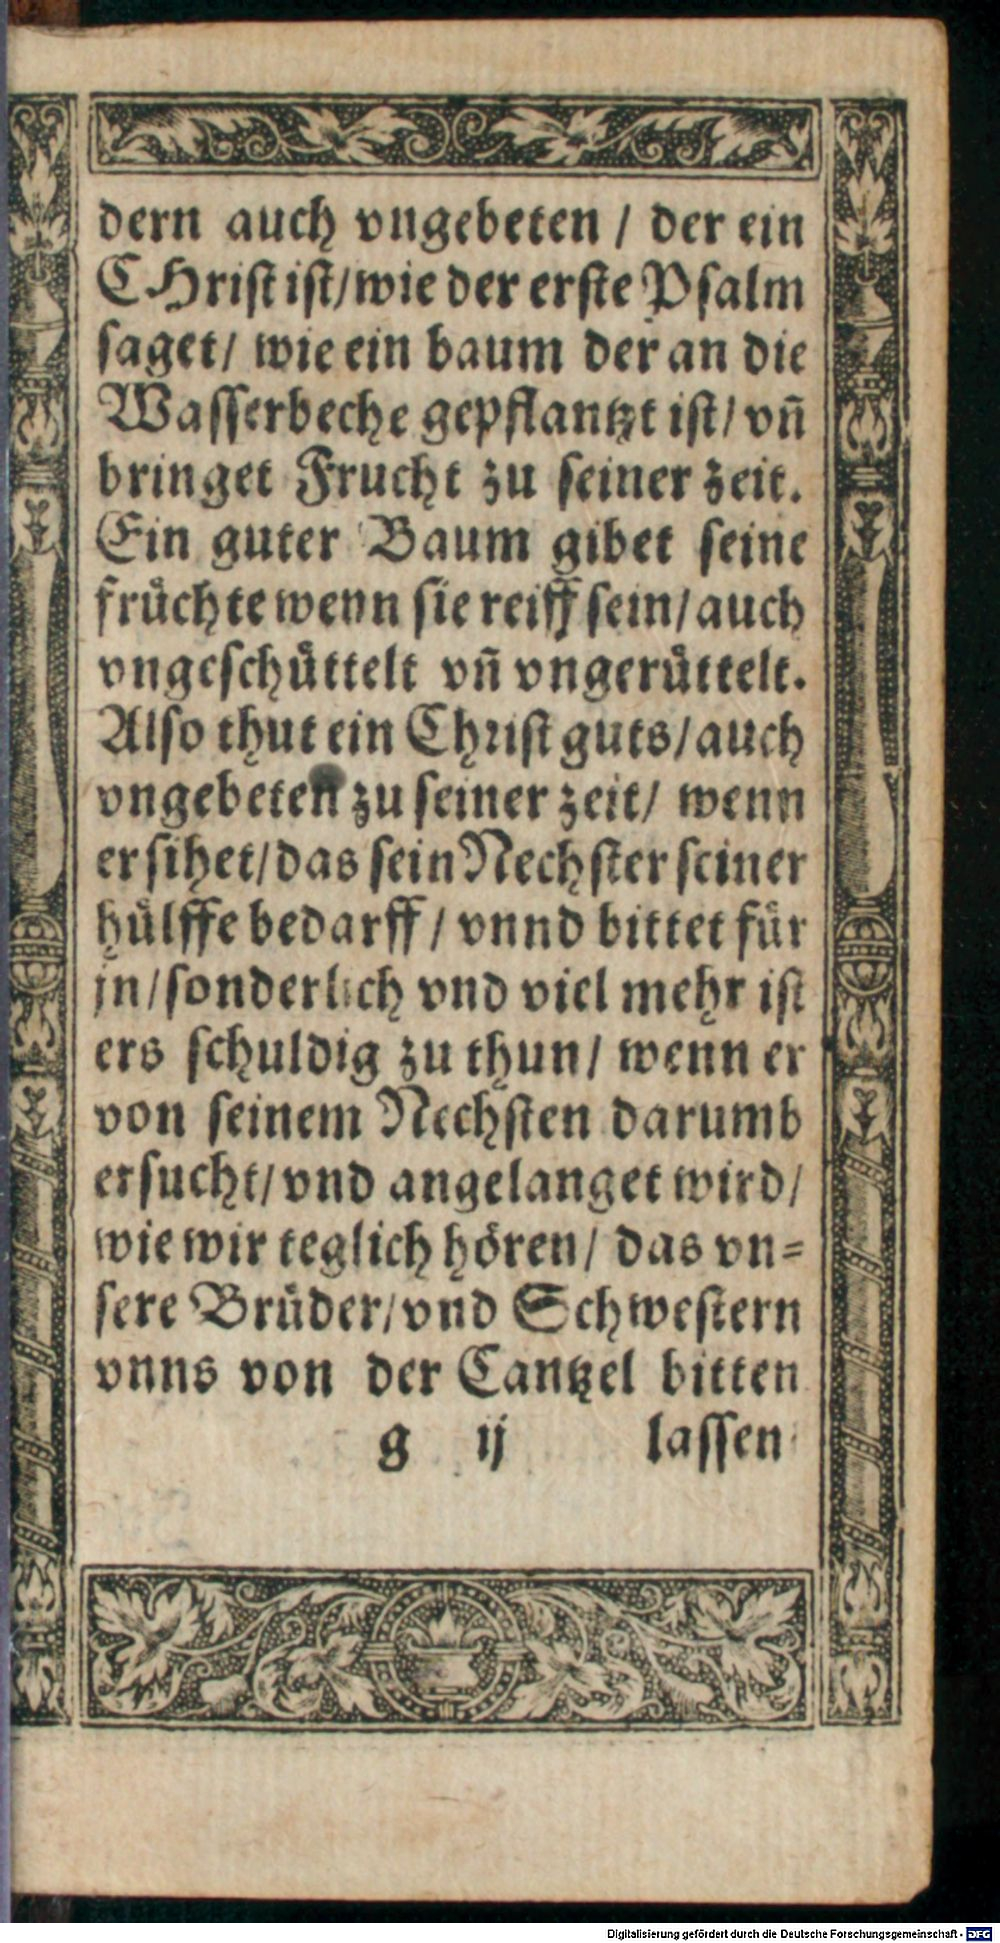 dern auch vngebeten / der ein
CHrist ist / wie der erste Psalm
saget / wie ein baum der an die
Wasserbeche gepflantzt ist / vn̄
bringet Frucht zu seiner zeit.
Ein guter Baum gibet seine
früchte wenn sie reiff sein / auch
vngeschüttelt vn̄ vngerüttelt.
Also thut ein Christ guts / auch
vngebeten zu seiner zeit / wenn
er sihet / das sein Nechster seiner
hülffe bedarff / vnnd bittet für
jn / sonderlich vnd viel mehr ist
ers schuldig zu thun / wenn er
von seinem Nechsten darumb
ersucht / vnd angelanget wird /
wie wir teglich hören / das vn=
sere Brüder / vnd Schwestern
vnns von der Cantzel bitten
g ij lassen
Digitalisierung gefördert durch die Deutsche Forschungsgemeinschaft - DFG